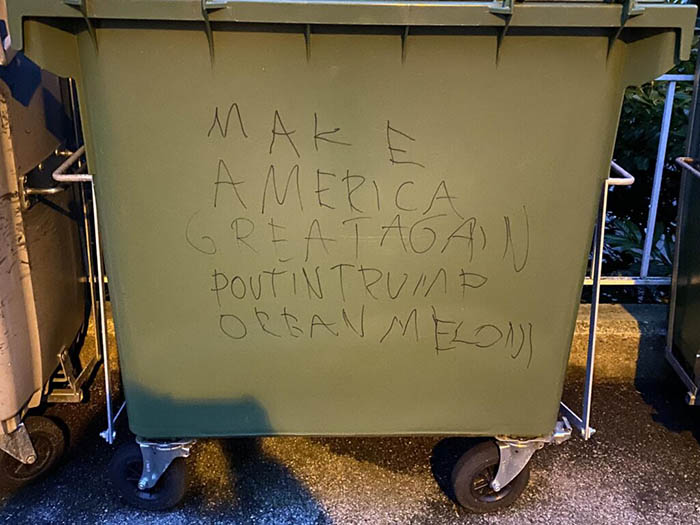 MAKE
AMERICA
GREAT AGAIN
POUTIN TRUMP
ORBAN MELONI